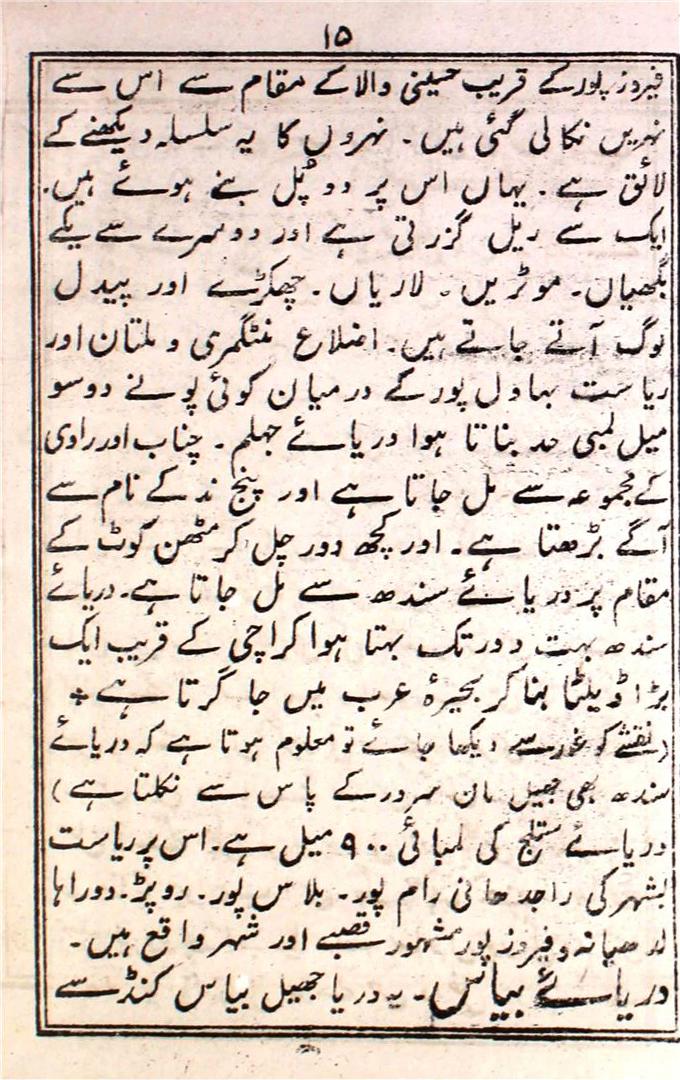 ۱۵
فیروز پور کے قریب حسینی والا کے مقام سے اس سے
نہریں نکالی گئی ہیں۔ نہروں کا یہ سلسلہ دیکھنے کے
لائق ہے۔ یہاں اس پر دو پُل بنے ہوئے ہیں۔
ایک سے ریل گزرتی ہے اور دوسرے سے یکے
بگھیاں۔ موٹریں۔ لاریاں۔ چھکڑے اور پیدل
لوگ آتے جاتے ہیں۔ اضلاع منٹگمری و ملتان اور
ریاست بہاول پور کے درمیان کوئی پونے دو سو
میل لمبی حد بناتا ہوا دریائے جہلم۔ چناب اور راوی
کے مجموعہ سے مل جاتا ہے اور پنج ند کے نام سے
آگے بڑھتا ہے۔ اور کچھ دور چل کر مٹھن کوٹ کے
مقام پر دریائے سندھ سے مل جاتا ہے۔ دریائے
سندھ بہت دور تک بہتا ہوا کراچی کے قریب ایک
بڑا ڈیلٹا بنا کر بحیرۂ عرب میں جا گرتا ہے ÷
(نقشے کو غور سے دیکھا جائے تو معلوم ہوتا ہے کہ دریائے
سندھ بھی جھیل مان سرور کے پاس سے نکلتا ہے)
دریائے ستلج کی لمبائی ۹۰۰ میل ہے۔ اس پر ریاست
بشہر کی راجدھانی رام پور۔ بلاس پور۔ روپڑ۔ دوراہا
لدھیانہ و فیروز پور مشہور قصبے اور شہر واقع ہیں۔
دریائے بیاس۔ یہ دریا جھیل بیاس کنڈ سے